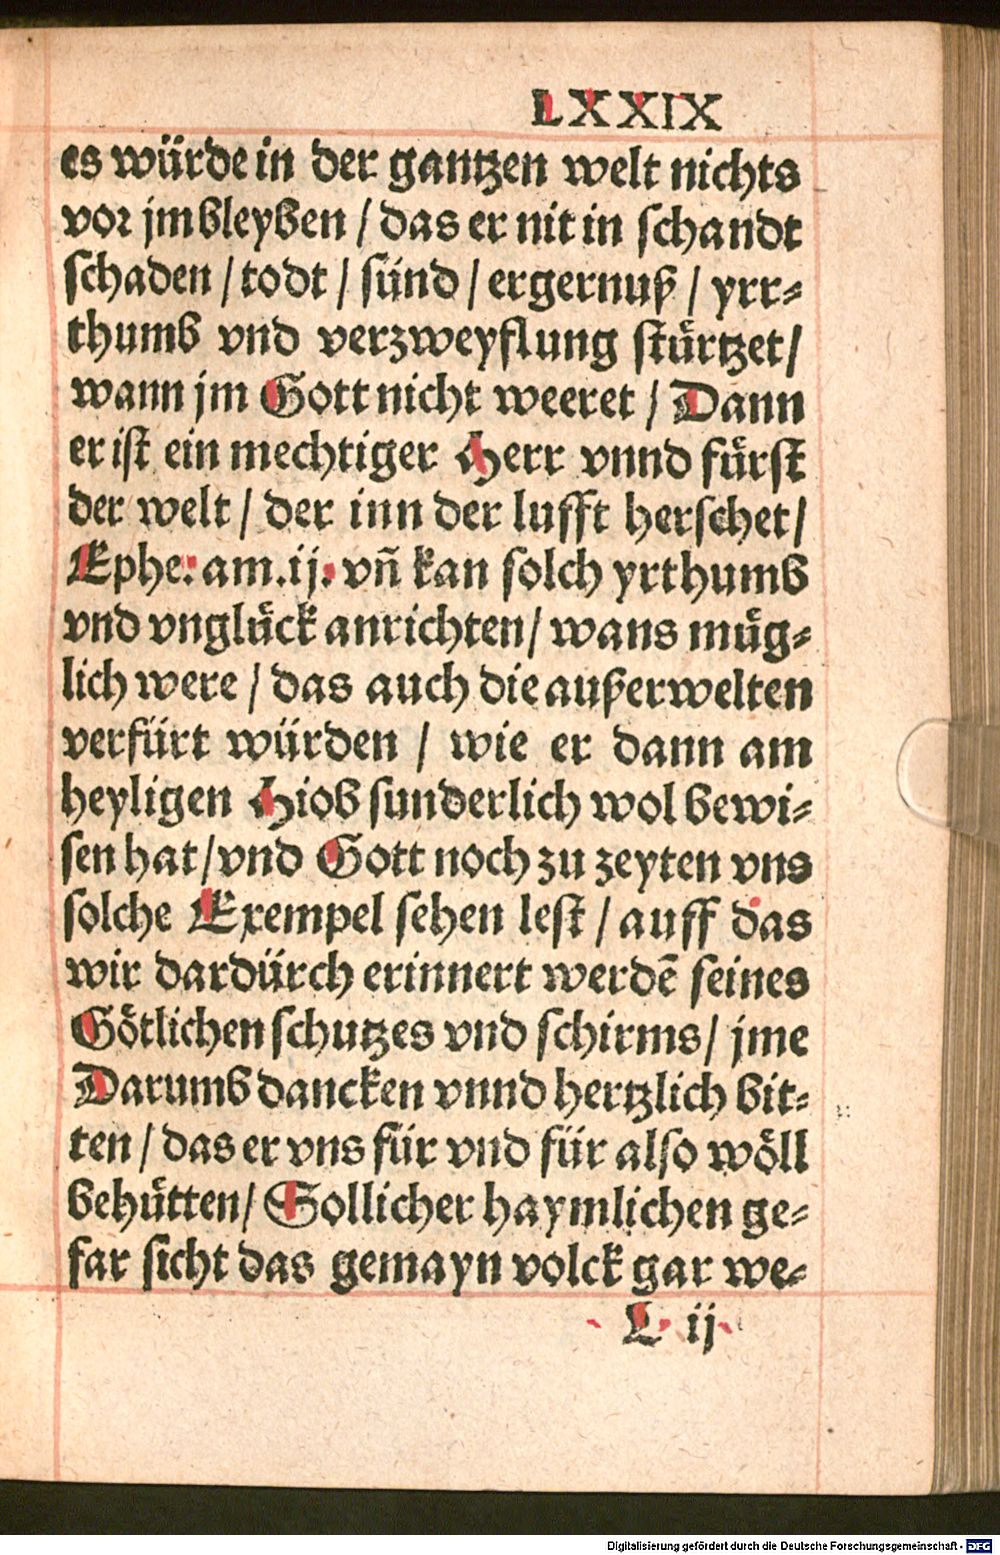 LXXIX
es würde in der gantzen welt nichts
vor jm bleyben / das er nit in schandt
schaden / todt / sünd / ergernuß / yrr-
thumb vnd verzweyflung stürtzet /
wann jm Gott nicht weeret / Dann
er ist ein mechtiger Herr vnnd fürst
der welt / der inn der lufft herschet /
Ephe: am .ij. vñ kan solch yrthumb
vnd vnglück anrichten / wans müg-
lich were / das auch die außerwelten
verfürt würden / wie er dann am
heyligen Hiob sunderlich wol bewi-
sen hat / vnd Gott noch zu zeyten vns
solche Exempel sehen lest / auff das
wir dardürch erinnert werdē seines
Götlichen schutzes vnd schirms / jme
Darumb dancken vnnd hertzlich bit-
ten / das er vns für vnd für also wöll
behütten / Sollicher haymlichen ge-
far sicht das gemayn volck gar we-
L ij
Digitalisierung gefördert durch die Deutsche Forschungsgemeinschaft - DFG